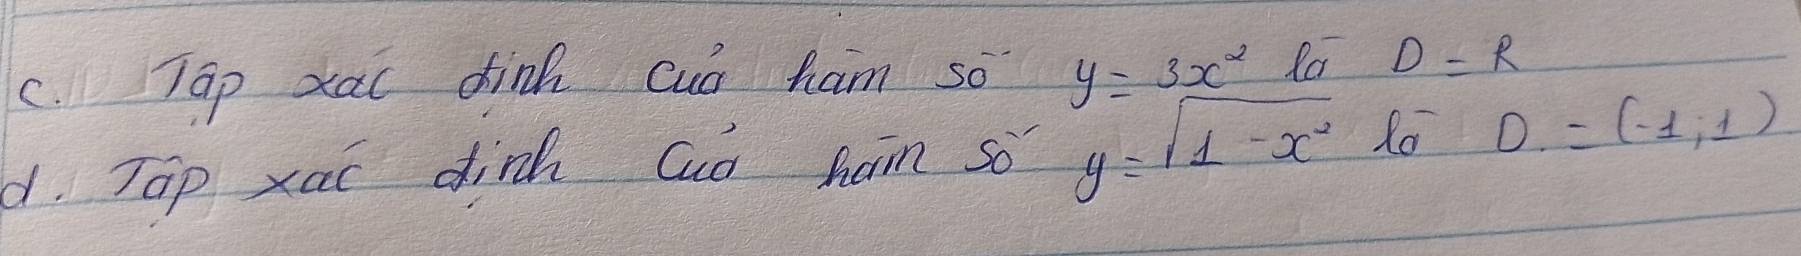 c. Tập xác định của hàm số y = 3x² là D = R
d. Tập xác định của hàm số y = √(1 - x²) là D = (-1; 1)